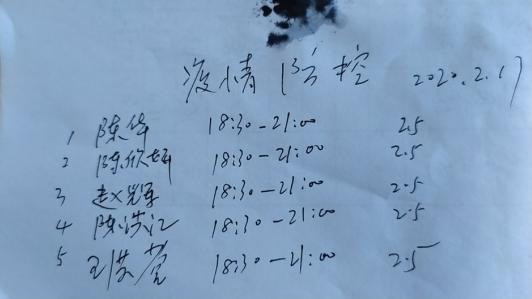 疫情防控 2020.2.17
1 陈华 18:30-21:00 2.5
2 陈欣妍 18:30-21:00 2.5
3 赵军 18:30-21:00 2.5
4 陈洪江 18:30-21:00 2.5
5 王营 18:30-21:00 2.5